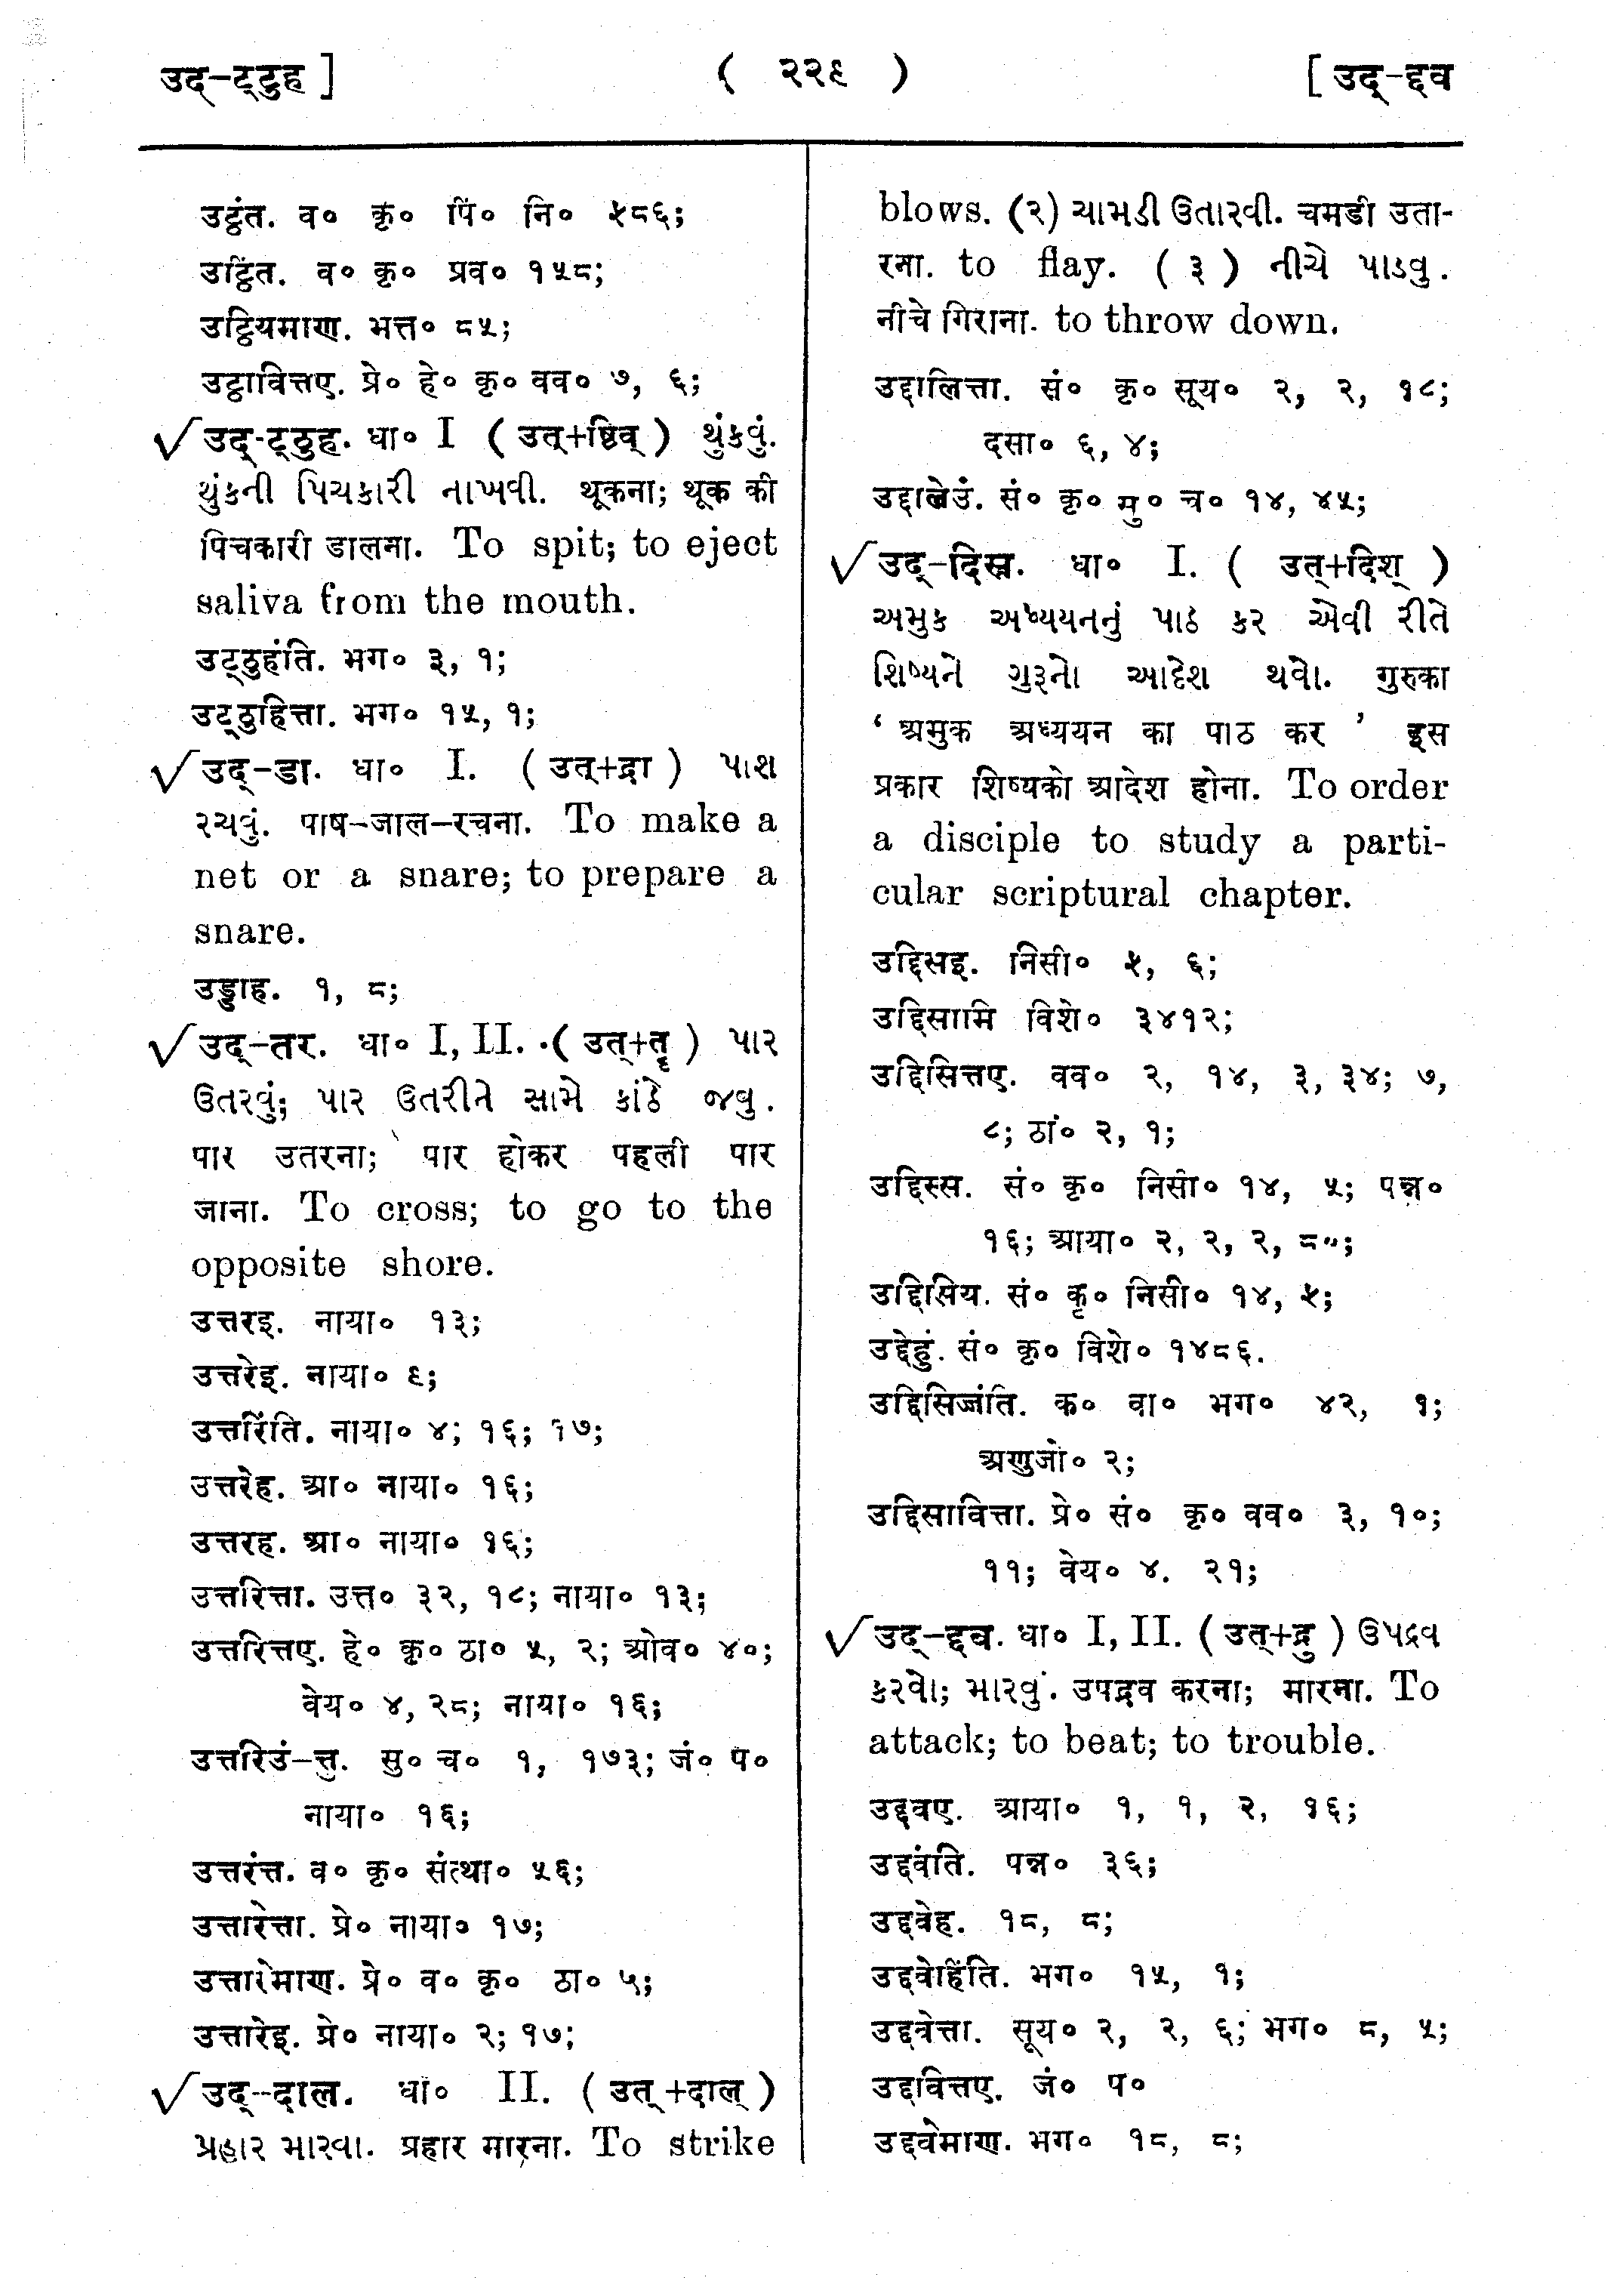 उद्-ट्टुह ] ( २२९ ) [ उद्-द्दव
उट्ठंत. व० कृ० पिं० नि० ५८६;
उट्ठिंत. व० कृ० प्रव० १५८;
उट्ठियमाण. भत्त० ८५;
उट्ठावित्तए. प्रे० हे० कृ० वव० ७, ६;
√ उद्-ट्ठुह. धा० I ( उत्+ष्ठिव् ) થુંકવું.
થુંકની પિચકારી નાખવી. थूकना; थूक की
पिचकारी डालना. To spit; to eject
saliva from the mouth.
उट्ठुहंति. भग० ३, १;
उट्ठुहित्ता. भग० १५, १;
√ उद्-डा. धा० I. ( उत्+द्रा ) પાશ
રચવું. पाष-जाल-रचना. To make a
net or a snare; to prepare a
snare.
उड्डाह. १, ८;
√ उद्-तर. धा० I, II. ( उत्+तॄ ) પાર
ઉતરવું; પાર ઉતરીને સામે કાંઠે જવુ.
पार उतरना; पार होकर पहली पार
जाना. To cross; to go to the
opposite shore.
उत्तरइ. नाया० १३;
उत्तरेइ. नाया० ९;
उत्तरिंति. नाया० ४; १६; १७;
उत्तरेह. आ० नाया० १६;
उत्तरह. आ० नाया० १६;
उत्तरित्ता. उत्त० ३२, १८; नाया० १३;
उत्तरित्तए. हे० कृ० ठा० ५, २; ओव० ४०;
वेय० ४, २८; नाया० १६;
उत्तरिउं-त्तु. सु० च० १, १७३; जं० प०
नाया० १६;
उत्तरंत्त. व० कृ० संत्था० ५६;
उत्तारेत्ता. प्रे० नाया० १७;
उत्तारेमाण. प्रे० व० कृ० ठा० ५;
उत्तारेइ. प्रे० नाया० २; १७;
√ उद्-दाल. धा० II. ( उत्+दाल् )
પ્રહાર મારવા. प्रहार मारना. To strike
blows. (२) ચામડી ઉતારવી. चमडी उता-
रना. to flay. ( ३ ) નીચે પાડવુ.
नीचे गिराना. to throw down.
उद्दालित्ता. सं० कृ० सूय० २, २, १८;
दसा० ६, ४;
उद्दालेउं. सं० कृ० सु० च० १४, ४५;
√ उद्-दिस. धा० I. ( उत्+दिश् )
અમુક અધ્યયનનું પાઠ કર એવી રીતે
શિષ્યને ગુરૂનો આદેશ થવો. गुरुका
‘ अमुक अध्ययन का पाठ कर ’ इस
प्रकार शिष्यको आदेश होना. To order
a disciple to study a parti-
cular scriptural chapter.
उद्दिसइ. निसी० ५, ६;
उद्दिसामि विशे० ३४१२;
उद्दिसित्तए. वव० २, १४, ३, ३४; ७,
८; ठां० २, १;
उद्दिस्स. सं० कृ० निसी० १४, ५; पन्न०
१६; आया० २, २, २,
उद्दिसिय. सं० कृ० निसी० १४, ५;
उद्देहुं. सं० कृ० विशे० १४८६.
उद्दिसिज्जंति. क० वा० भग० ४२, १;
अणुजो० २;
उद्दिसावित्ता. प्रे० सं० कृ० वव० ३, १०;
११; वेय० ४. २१;
√ उद्-द्दव. धा० I, II. ( उत्+द्रु ) ઉપદ્રવ
કરવો; મારવું. उपद्रव करना; मारना. To
attack; to beat; to trouble.
उद्दवए. आया० १, १, २, १६;
उद्दवंति. पन्न० ३६;
उद्दवेह. १८, ८;
उद्दवेहिंति. भग० १५, १;
उद्दवेत्ता. सूय० २, २, ६; भग० ८, ५;
उद्दवित्तए. जं० प०
उद्दवेमाण. भग० १८, ८;